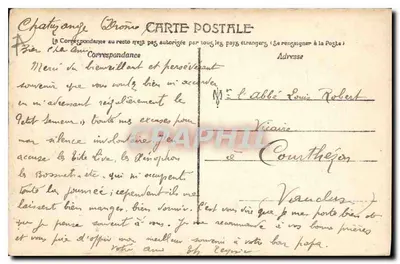 Chatuzange Drôme
CARTE POSTALE
La Correspondance au recto n'est pas autorisée par tous les pays étrangers (Se renseigner à la Poste)
Correspondance
Adresse
Bien cher ami
Merci du bienveillant et persévérant
souvenir que vous voulez bien m'accorder
en m'adressant régulièrement le
Petit Semeur. toutes mes excuses pour
mon silence involontaire, j'en
accuse le Tite Live, le Xénophon
le Bossuet etc, qui m'occupent
toute la journée; cependant ils me
laissent bien manger, bien dormir. C'est vous dire que je me porte bien et
que je pense souvent à vous. Je me recommande à vos bonnes prières
et vous prie d'offrir mon meilleur souvenir à votre bon papa.
votre ami
M. l'Abbé Louis Robert
Vicaire
à Courthézon
Vaucluse